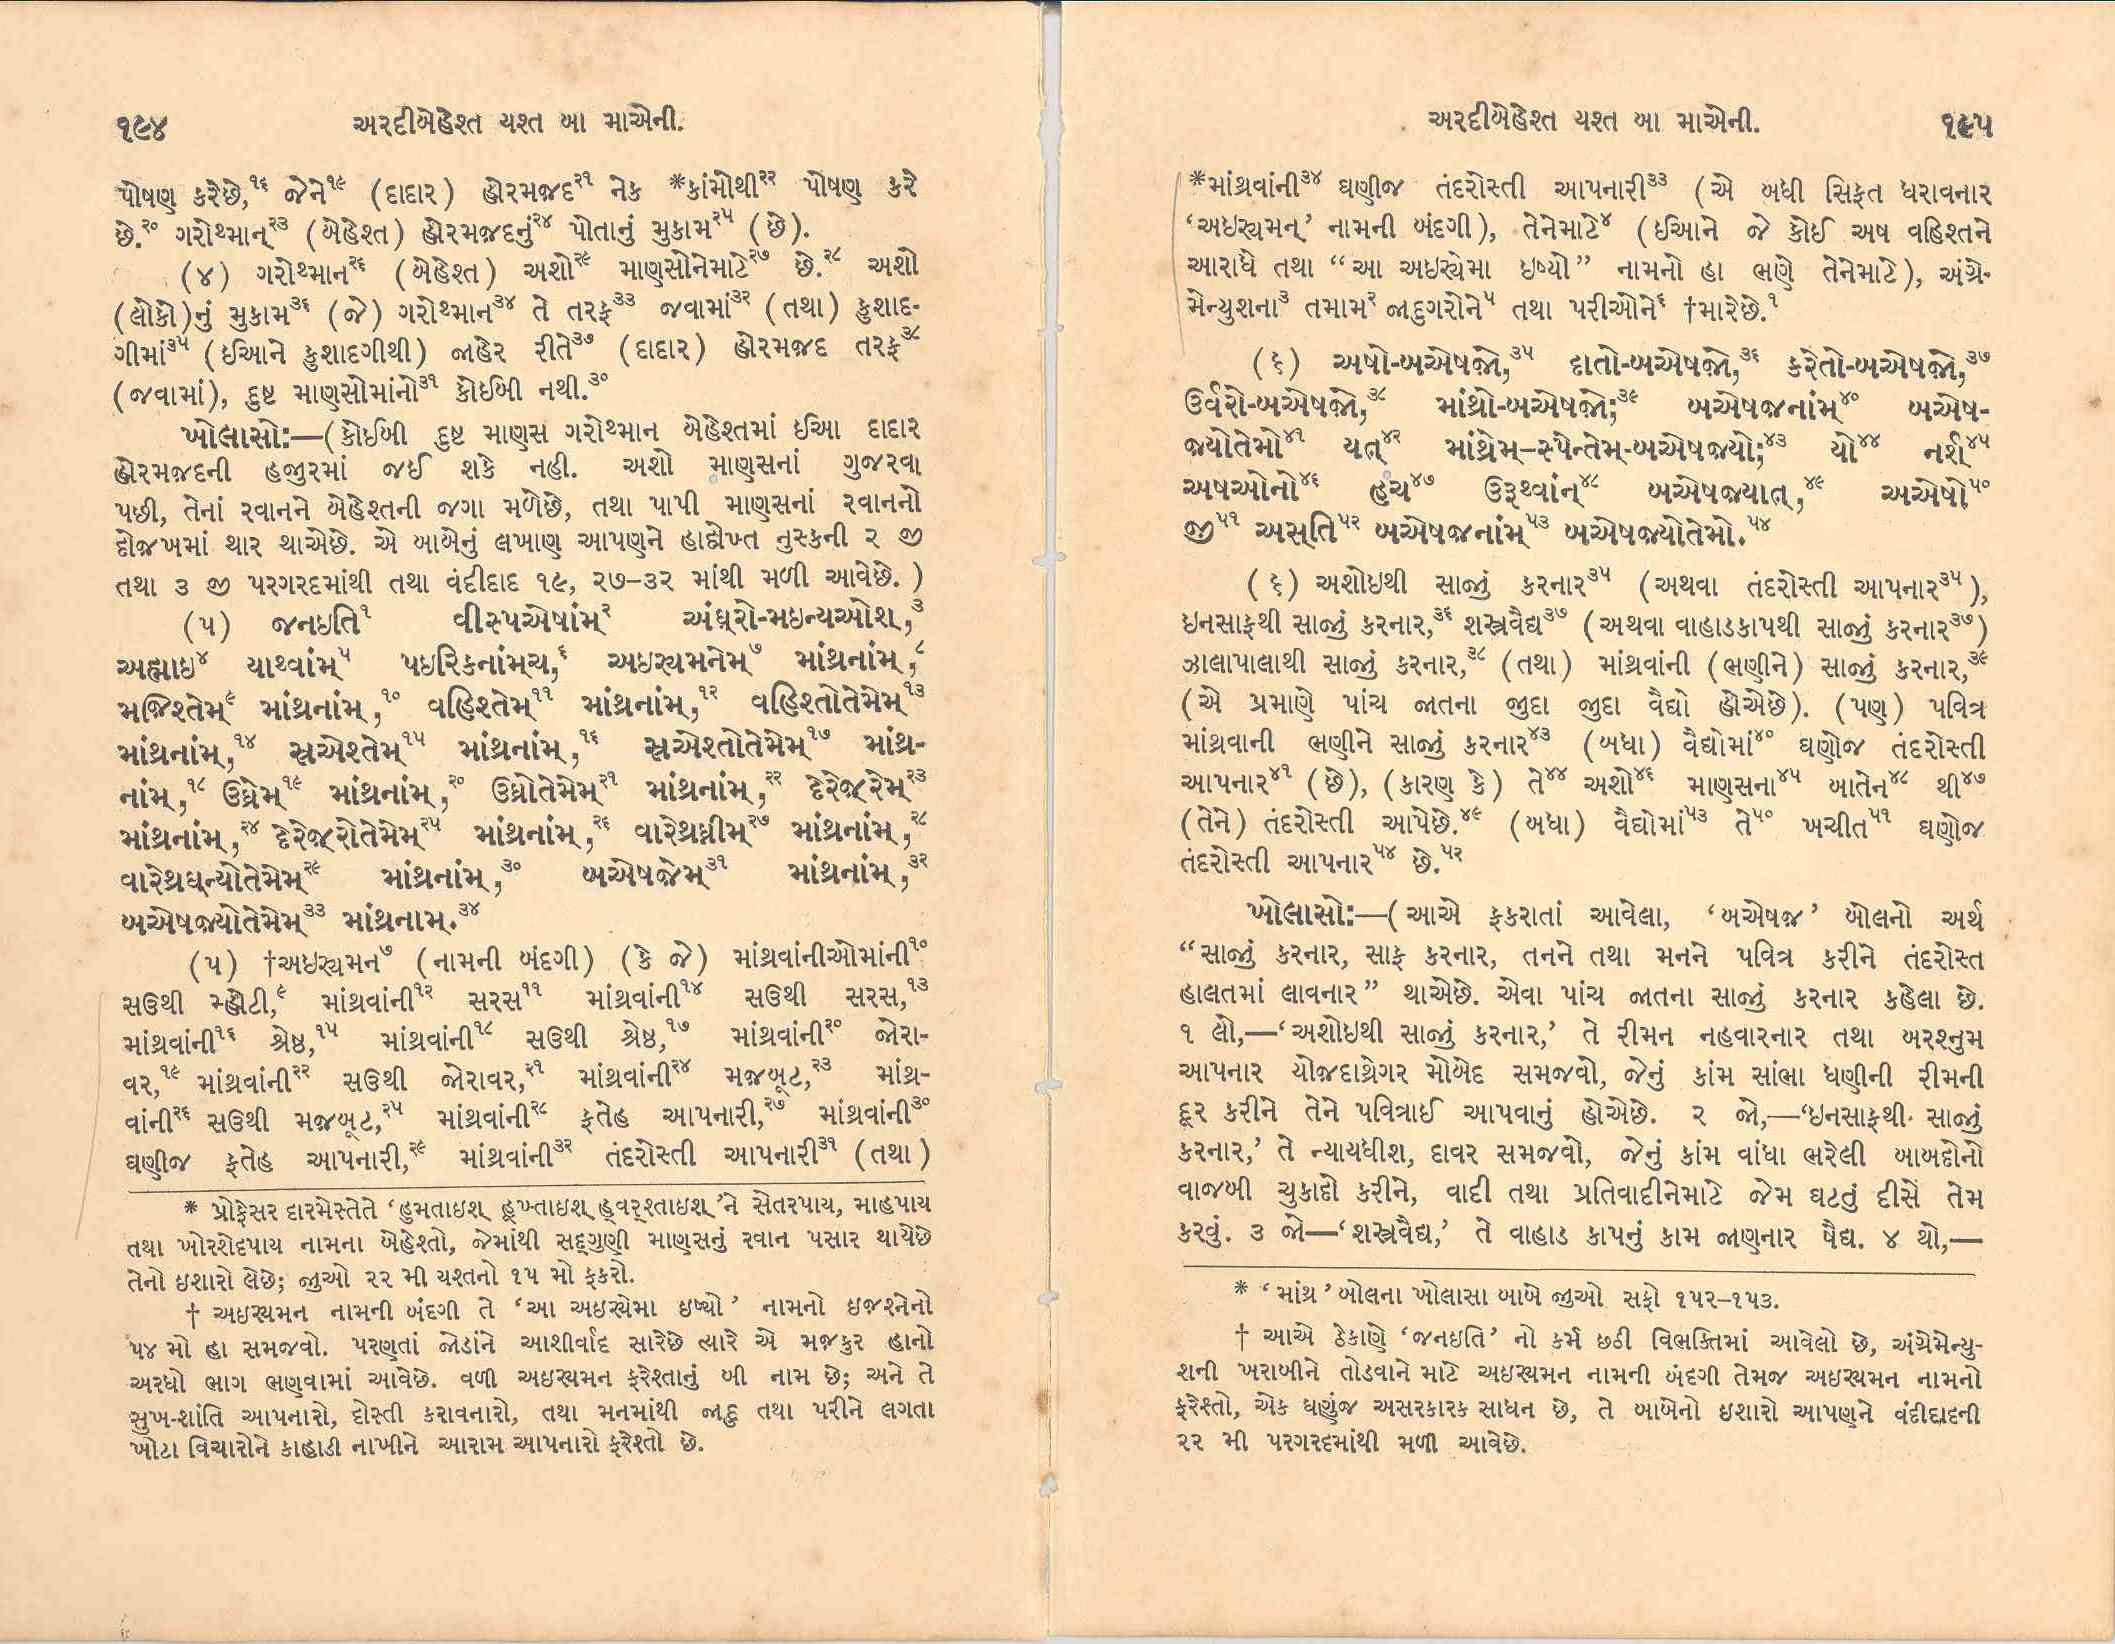 ૧૯૪ અરદીબેહેશ્ત યશ્ત બા માએની.
પોષણ કરેછે,૧૬ જેને૧૯ (દાદાર) હોરમજ઼દ૨૧ નેક *કાંમોથી૨૨ પોષણ કરે
છે.૨૦ ગરોથ્માન્૨૩ (બેહેશ્ત) હોરમજ઼દનું૨૪ પોતાનું મુકામ૨૫ (છે).
(૪) ગરોથ્માન૨૬ (બેહેશ્ત) અશો૨૯ માણસોનેમાટે૨૭ છે.૨૮ અશો
(લોકો)નું મુકામ૩૬ (જે) ગરોથ્માન૩૪ તે તરફ૩૩ જવામાં૩૨ (તથા) કુશાદ-
ગીમાં૩૫ (ઈઆને કુશાદગીથી) જાહેર રીતે૩૭ (દાદાર) હોરમજ઼દ તરફ૩૮
(જવામાં), દુષ્ટ માણસોમાંનો૩૧ કોઈબી નથી.૩૦
ખોલાસો:—(કોઈબી દુષ્ટ માણસ ગરોથ્માન બેહેશ્તમાં ઈઆ દાદાર
હોરમજ઼દની હજુરમાં જઈ શકે નહી. અશો માણસનાં ગુજરવા
પછી, તેનાં રવાનને બેહેશ્તની જગા મળેછે, તથા પાપી માણસનાં રવાનનો
દોજ઼ખમાં થાર થાએછે. એ બાબેનું લખાણ આપણને હાદોખ્ત નુસ્કની ૨ જી
તથા ૩ જી પરગરદમાંથી તથા વંદીદાદ ૧૯, ૨૭–૩૨ માંથી મળી આવેછે. )
(૫) જનઇતિ૧ વીસ્પએષાંમ્૨ અંઘ્રો-મઇન્યઓશ્,૩
અહ્માઇ૪ યાથ્વાંમ્૫ પઇરિકનાંમ્ચ,૬ અઇરયમનેમ્૭ માંથ્રનાંમ્,૮
મજ઼િશ્તેમ્૯ માંથ્રનાંમ્,૧૦ વહિશ્તેમ્૧૧ માંથ્રનાંમ્,૧૨ વહિશ્તોતેમેમ્૧૩
માંથ્રનાંમ્,૧૪ સ્રએશ્તેમ્૧૫ માંથ્રનાંમ્,૧૬ સ્રએશ્તોતેમેમ્૧૭ માંથ્ર-
નાંમ્,૧૮ ઉઘ્રેમ્૧૯ માંથ્રનાંમ્,૨૦ ઉઘ્રોતેમેમ્૨૧ માંથ્રનાંમ્,૨૨ દેરેજ઼્રેમ્૨૩
માંથ્રનાંમ્,૨૪ દેરેજ઼્રોતેમેમ્૨૫ માંથ્રનાંમ્,૨૬ વારેથ્રઘ્નીમ્૨૭ માંથ્રનાંમ્,૨૮
વારેથ્રઘ્ન્યોતેમેમ્૨૯ માંથ્રનાંમ્,૩૦ બએષજ઼ેમ્૩૧ માંથ્રનાંમ્,૩૨
બએષજ઼્યોતેમેમ્૩૩ માંથ્રનામ્.૩૪
(૫) †અઇરયમન૭ (નામની બંદગી) (કે જે) માંથ્રવાંનીઓમાંની૧૦
સઉથી મ્હોટી,૯ માંથ્રવાંની૧૨ સરસ૧૧ માંથ્રવાંની૧૪ સઉથી સરસ,૧૩
માંથ્રવાંની૧૬ શ્રેષ્ઠ,૧૫ માંથ્રવાંની૧૮ સઉથી શ્રેષ્ઠ,૧૭ માંથ્રવાંની૨૦ જોરા-
વર,૧૯ માંથ્રવાંની૨૨ સઉથી જોરાવર,૨૧ માંથ્રવાંની૨૪ મજ઼બૂટ,૨૩ માંથ્ર-
વાંની૨૬ સઉથી મજ઼બૂટ,૨૫ માંથ્રવાંની૨૮ ફતેહ આપનારી,૨૭ માંથ્રવાંની૩૦
ઘણીજ ફતેહ આપનારી,૨૯ માંથ્રવાંની૩૨ તંદરોસ્તી આપનારી૩૧ (તથા)
* પ્રોફેસર દારમેસ્તેતે ‘હુમતાઇશ્ હૂખ્તાઇશ્ હ્વર્શ્તાઇશ્’ને સેતરપાય, માહપાય
તથા ખોરશેદપાય નામના બેહેશ્તો, જેમાંથી સદ્ગુણી માણસનું રવાન પસાર થાયેછે
તેનો ઇશારો લેછે; જુઓ ૨૨ મી યશ્તનો ૧૫ મો ફકરો.
† અઇરયમન નામની બંદગી તે ‘આ અઇરયેમા ઇષ્યો’ નામનો ઇજ઼શ્નેનો
૫૪ મો હા સમજવો. પરણતાં જોડાંને આશીર્વાદ સારેછે ત્યારે એ મજ઼કુર હાનો
અરધો ભાગ ભણવામાં આવેછે. વળી અઇરયમન ફરેશ્તાનું બી નામ છે; અને તે
સુખ-શાંતિ આપનારો, દોસ્તી કરાવનારો, તથા મનમાંથી જાદુ તથા પરીને લગતા
ખોટા વિચારોને કાહાડી નાખીને આરામ આપનારો ફરેશ્તો છે.
અરદીબેહેશ્ત યશ્ત બા માએની. ૧૯૫
*માંથ્રવાંની૩૪ ઘણીજ તંદરોસ્તી આપનારી૩૩ (એ બધી સિફત ધરાવનાર
‘અઇરયમન્’ નામની બંદગી), તેનેમાટે૪ (ઈઆને જે કોઈ અષ વહિશ્તને
આરાધે તથા “આ અઇરયેમા ઇષ્યો” નામનો હા ભણે તેનેમાટે), અંગ્રે-
મેન્યુશના૩ તમામ૨ જાદુગરોને૫ તથા પરીઓને૬ †મારેછે.૧
(૬) અષો-બએષજ઼ો,૩૫ દાતો-બએષજ઼ો,૩૬ કરેતો-બએષજ઼ો,૩૭
ઉર્વરો-બએષજ઼ો,૩૮ માંથ્રો-બએષજ઼ો;૩૯ બએષજ઼નાંમ્૪૦ બએષ-
જ઼્યોતેમો૪૧ યત્૪૨ માંથ્રેમ્–સ્પેન્તેમ્-બએષજ઼્યો;૪૩ યો૪૪ નર્શ્૪૫
અષઓનો૪૬ હચ૪૭ ઉરૂથ્વાંન્૪૮ બએષજ઼્યાત્,૪૯ અએષો૫૦
જ઼ી૫૧ અસ્તિ૫૨ બએષજ઼નાંમ્૫૩ બએષજ઼્યોતેમો.૫૪
(૬) અશોઇથી સાજું કરનાર૩૫ (અથવા તંદરોસ્તી આપનાર૩૫),
ઇનસાફથી સાજું કરનાર,૩૬ શસ્ત્રવૈદ્ય૩૭ (અથવા વાહાડકાપથી સાજું કરનાર૩૭)
ઝાલાપાલાથી સાજું કરનાર,૩૮ (તથા) માંથ્રવાંની (ભણીને) સાજું કરનાર,૩૯
(એ પ્રમાણે પાંચ જાતના જુદા જુદા વૈદ્યો હોએછે). (પણ) પવિત્ર
માંથ્રવાની ભણીને સાજું કરનાર૪૩ (બધા) વૈદ્યોમાં૪૦ ઘણોજ તંદરોસ્તી
આપનાર૪૧ (છે), (કારણ કે) તે૪૪ અશો૪૬ માણસના૪૫ બાતેન૪૮ થી૪૭
(તેને) તંદરોસ્તી આપેછે.૪૯ (બધા) વૈદ્યોમાં૫૩ તે૫૦ ખચીત૫૧ ઘણોજ
તંદરોસ્તી આપનાર૫૪ છે.૫૨
ખોલાસો:—(આએ ફકરાતાં આવેલા, ‘બએષજ઼’ બોલનો અર્થ
“સાજું કરનાર, સાફ કરનાર, તનને તથા મનને પવિત્ર કરીને તંદરોસ્ત
હાલતમાં લાવનાર” થાએછે. એવા પાંચ જાતના સાજું કરનાર કહેલા છે.
૧ લો,—‘અશોઇથી સાજું કરનાર,’ તે રીમન નહવારનાર તથા બરશ્નુમ
આપનાર યોજ઼દાથ્રેગર મોબેદ સમજવો, જેનું કાંમ સાંભા ધણીની રીમની
દૂર કરીને તેને પવિત્રાઈ આપવાનું હોએછે. ૨ જો,—‘ઇનસાફથી સાજું
કરનાર,’ તે ન્યાયધીશ, દાવર સમજવો, જેનું કાંમ વાંધા ભરેલી બાબદોનો
વાજબી ચુકાદો કરીને, વાદી તથા પ્રતિવાદીનેમાટે જેમ ઘટતું દીસે તેમ
કરવું. ૩ જો—‘શસ્ત્રવૈદ્ય,’ તે વાહાડ કાપનું કામ જાણનાર ષૈદ્ય. ૪ થો,—
* ‘માંથ્ર’ બોલના ખોલાસા બાબે જુઓ સફો ૧૫૨–૧૫૩.
† આએ ઠેકાણે ‘જનઇતિ’ નો કર્મ છઠી વિભક્તિમાં આવેલો છે, અંગ્રેમેન્યુ-
શની ખરાબીને તોડવાને માટે અઇરયમન નામની બંદગી તેમજ અઇરયમન નામનો
ફરેશ્તો, એક ઘણુંજ અસરકારક સાધન છે, તે બાબેનો ઇશારો આપણને વંદીદાદની
૨૨ મી પરગરદમાંથી મળી આવેછે.